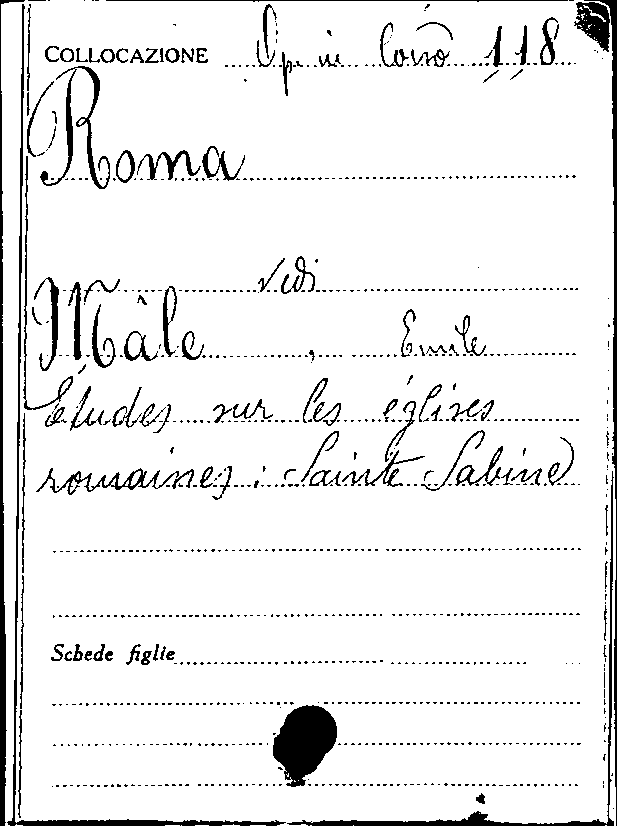 COLLOCAZIONE Op. in corso 118
Roma
Vedi
Mâle, Emile
Études sur les églises
romaines: Sainte Sabine
Schede figlie